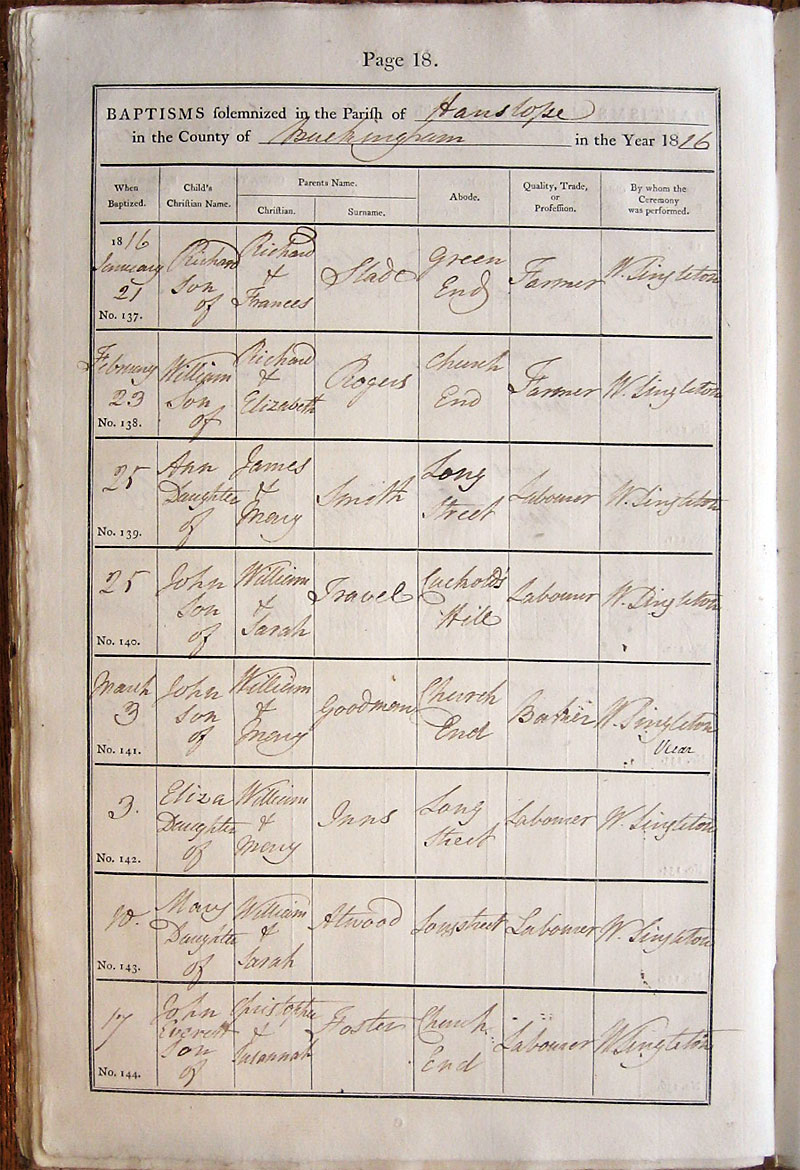 Page 18.
BAPTISMS solemnized in the Parish of Hanslope
in the County of Buckingham in the Year 1816
When Baptized. Child's Christian Name. Parents Name. Abode. Quality, Trade, or Profession. By whom the Ceremony was performed.
Christian. Surname.
1816 January 21 No. 137. Richard Son of Richard & Frances Slade Green End Farmer W. Singleton
February 23 No. 138. William Son of Richard & Elizabeth Rogers Church End Farmer W. Singleton
25 No. 139. Ann Daughter of James & Mary Smith Long Street Labourer W. Singleton
25 No. 140. John Son of William & Sarah Travel Cuckold's Hill Labourer W. Singleton
March 3 No. 141. John Son of William & Mary Goodman Church End W. Singleton Vicar
3. No. 142. Eliza Daughter of William & Mary Inns Long Street Labourer W. Singleton
10. No. 143. Mary Daughter of William & Sarah Atwood Longstreet Labourer W. Singleton
17 No. 144. John Everett Son of Christopher & Susannah Foster Church End Labourer W. Singleton